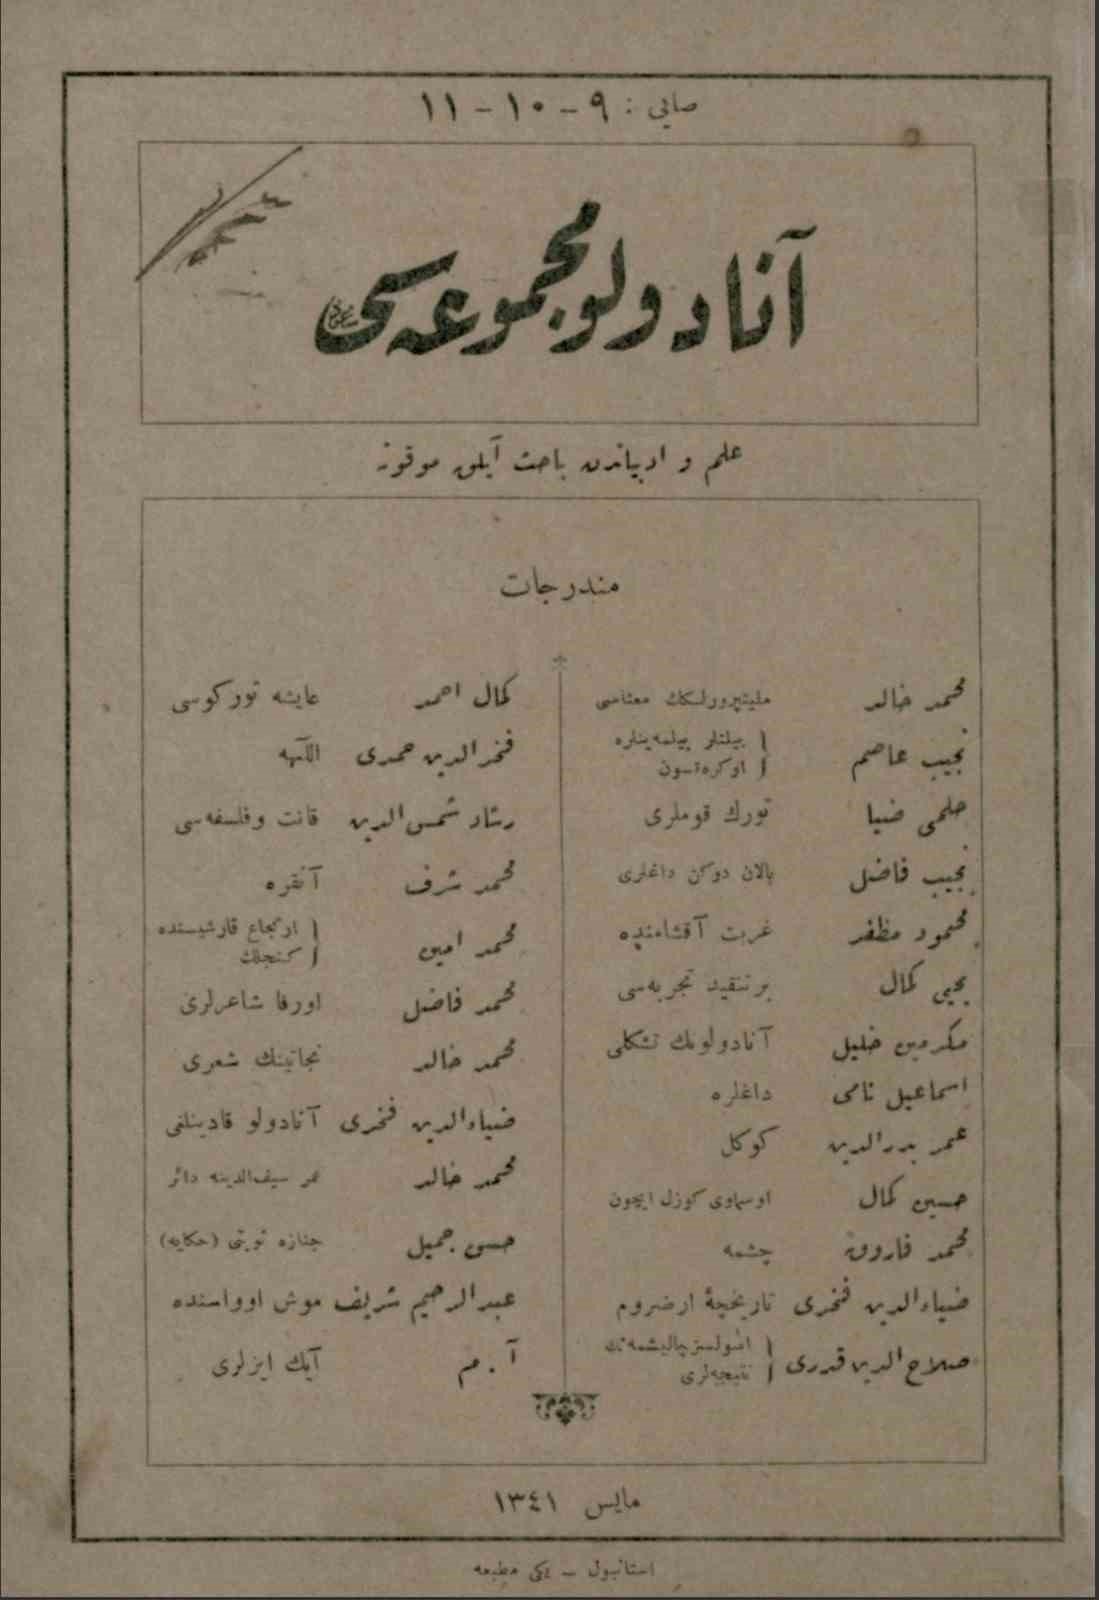 صایی : ٩ - ١٠ - ١١
آنادولو مجموعه‌سی
علم و ادبیاتدن باحث آیلق موقوته
مندرجات
محمد خالد ملیتپرورلكك معناسی
نجیب عاصم بیلنلر بیلمه‌ینلره
اوكره‌تسون
حلمی ضیا تورك قوملری
نجیب فاضل پالان دوكن داغلری
محمود مظفر غربت آقشامنده
یحیی كمال بر تنقید تجربه‌سی
مكرمین خلیل آنادولونك تشكلی
اسماعیل نامی داغلره
عمر بدرالدین كوكل
حسین كمال اوسماوی كوزل ایچون
محمد فاروق چشمه
ضیاءالدین فخری تاریخچۀ ارضروم
صلاح الدین قدری اصولسز چالیشمه‌نك
نتیجه‌لری
كمال احمد عایشه توركوسی
فخرالدین حمدی اللٓهه
رشاد شمس الدین قانت و فلسفه‌سی
محمد شرف آنقره
محمد امین ارتجاع قارشیسنده
كنجلك
محمد فاضل اورفا شاعرلری
محمد خالد نجاتینك شعری
ضیاءالدین فخری آنادولو قادینلغی
محمد خالد عمر سیف‌الدینه دائر
حسن جمیل جنازه نوبتی (حكایه)
عبدالرحیم شریف موش اوواسنده
آ . م آیك ایزلری
مایس ١٣٤١
استانبول - یكی مطبعه